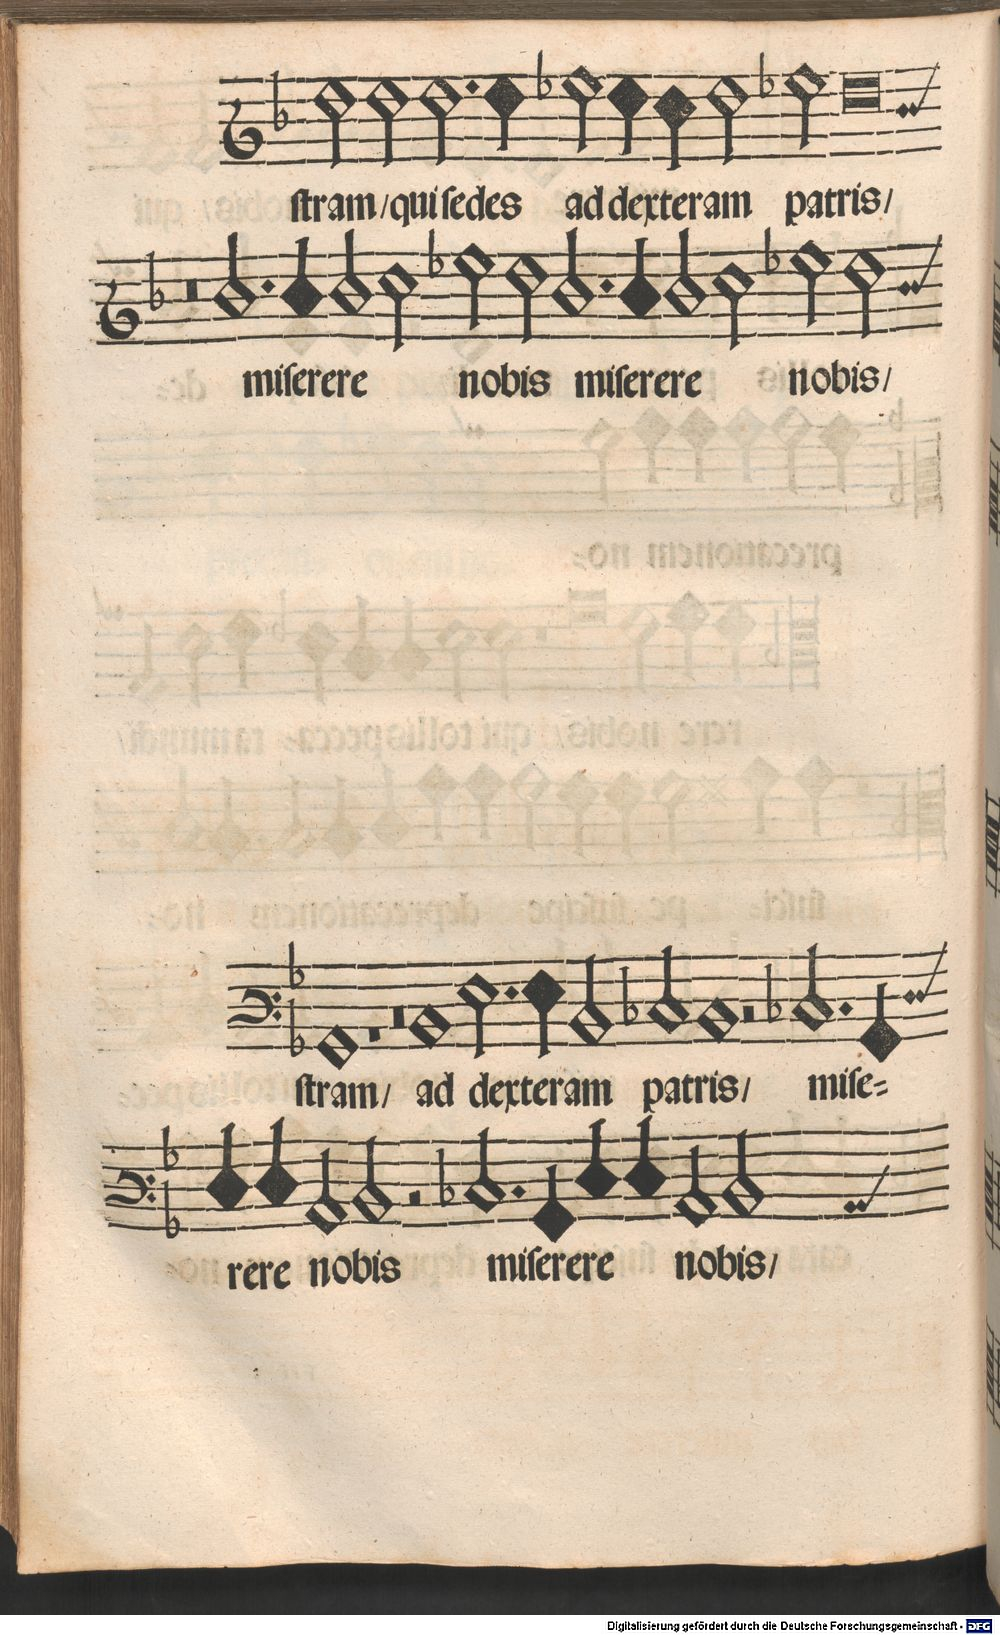 ſtram/ qui ſedes ad dexteram patris/
miſerere nobis miſerere nobis/
ſtram/ ad dexteram patris/ miſe=
rere nobis miſerere nobis/
Digitalisierung gefördert durch die Deutsche Forschungsgemeinschaft - DFG